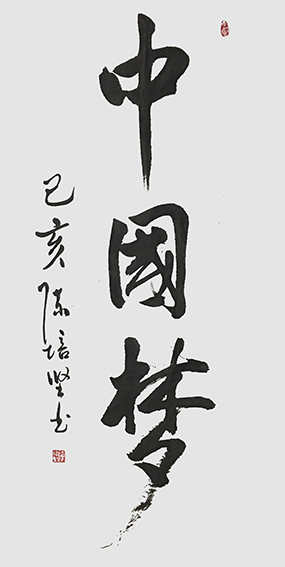 中國梦
己亥 陈培坚书